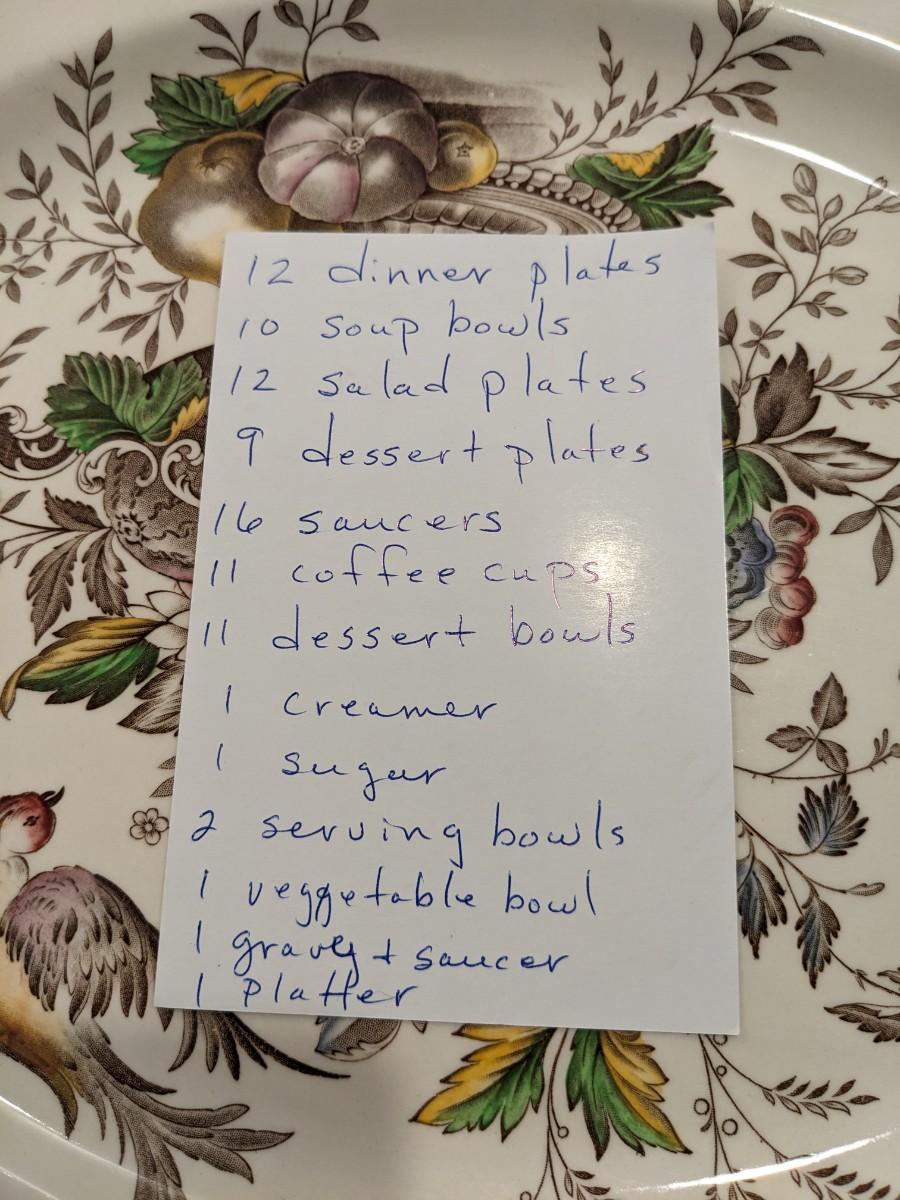 12 dinner plates
10 soup bowls
12 salad plates
9 dessert plates
16 saucers
11 coffee cups
11 dessert bowls
1 creamer
1 sugar
2 serving bowls
1 veggetable bowl
1 gravy + saucer
1 Platter